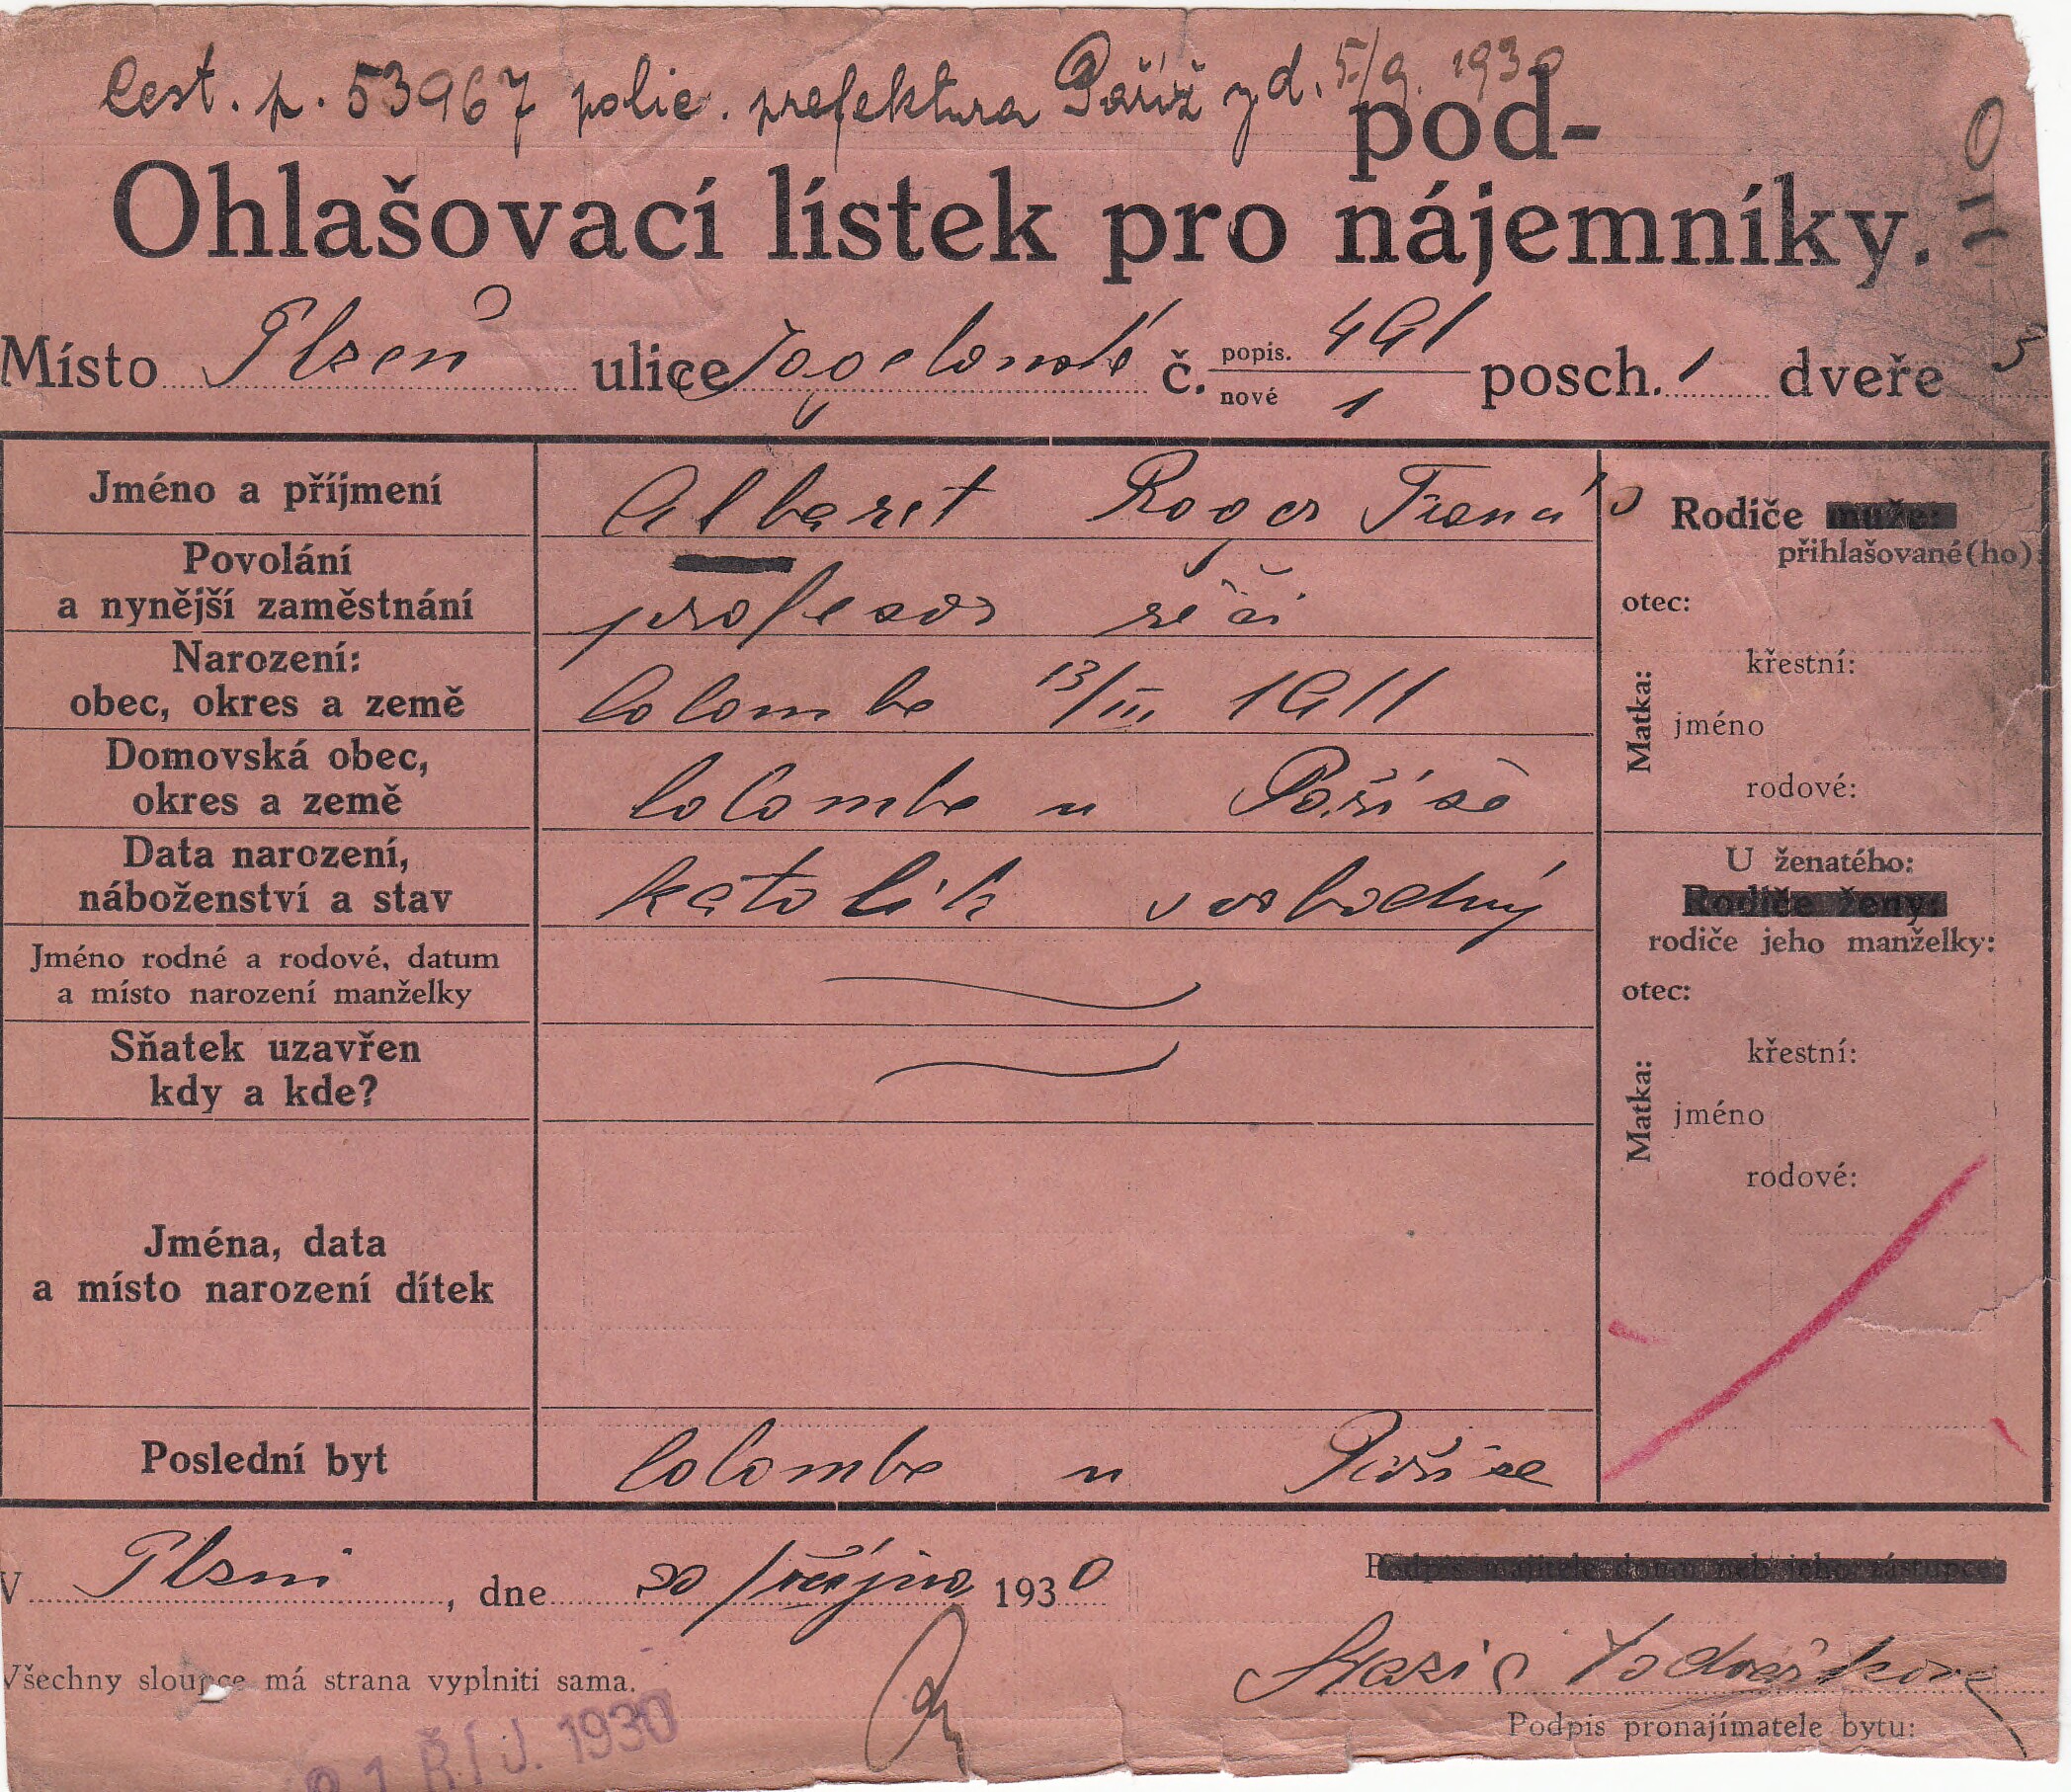 Cest. p. 53967 polic. prefektura Paříž z d. 5/9. 1930
pod-
Ohlašovací lístek pro nájemníky.
Místo Plzeň ulice Jagelonská č. popis. 491 posch. 1 dveře 5
nové 1
Jméno a příjmení Albaret Roger Franc
Povolání
a nynější zaměstnání profesor řečí
Narození:
obec, okres a země Colombe 13/III 1911
Domovská obec,
okres a země Colombe u Paříže
Data narození,
náboženství a stav katolík svobodný
Jméno rodné a rodové, datum
a místo narození manželky
Sňatek uzavřen
kdy a kde?
Jména, data
a místo narození dítek
Poslední byt Colombe u Paříže
Rodiče muže:
přihlašované(ho):
otec:
Matka:
křestní:
jméno
rodové:
U ženatého:
Rodiče ženy:
rodiče jeho manželky:
otec:
Matka:
křestní:
jméno
rodové:
V Plzni, dne 20/října 1930
Podpis majitele domu neb jeho zástupce
Všechny sloupce má strana vyplniti sama.
Marie
Podpis pronajímatele bytu:
21 ŘÍJ. 1930